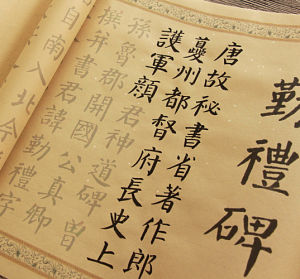 勤禮碑
唐故秘書省著作郎
夔州都督府長史上
護軍顏君神道碑曾
孫魯郡開國公真卿
撰并書君諱勤禮字
自南入北令